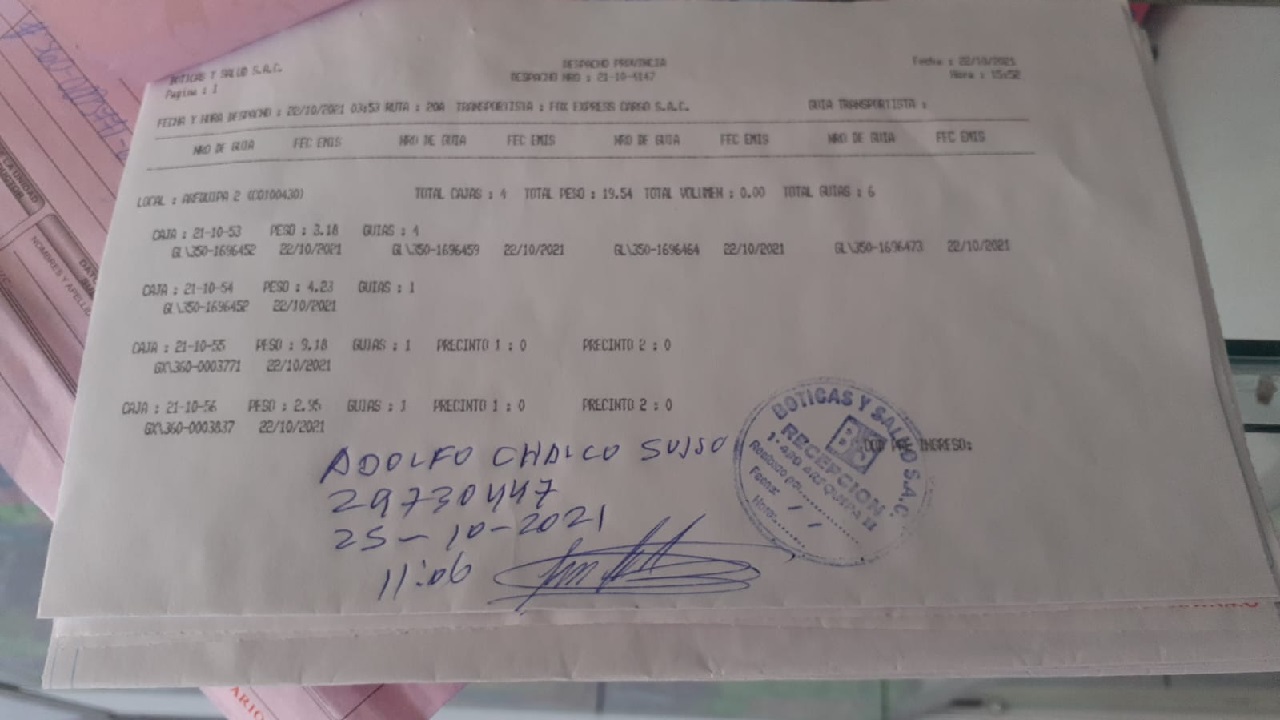 BOTICAS Y SALUD S.A.C.
Pagina : 1
DESPACHO PROVINCIA
DESPACHO NRO : 21-10-4147
Fecha : 22/10/2021
Hora : 15:52
FECHA Y HORA DESPACHO : 22/10/2021 03:53 RUTA : 20A TRANSPORTISTA : FOX EXPRESS CARGO S.A.C. GUIA TRANSPORTISTA :
NRO DE GUIA FEC EMIS NRO DE GUIA FEC EMIS NRO DE GUIA FEC EMIS NRO DE GUIA FEC EMIS
LOCAL : AREQUIPA 2 (CO100430) TOTAL CAJAS : 4 TOTAL PESO : 19.54 TOTAL VOLUMEN : 0.00 TOTAL GUIAS : 6
CAJA : 21-10-53 PESO : 3.18 GUIAS : 4
GL\350-1696452 22/10/2021 GL\350-1696459 22/10/2021 GL\350-1696464 22/10/2021 GL\350-1696473 22/10/2021
CAJA : 21-10-54 PESO : 4.23 GUIAS : 1
GL\350-1696452 22/10/2021
CAJA : 21-10-55 PESO : 9.18 GUIAS : 1 PRECINTO 1 : 0 PRECINTO 2 : 0
GX\360-0003771 22/10/2021
CAJA : 21-10-56 PESO : 2.95 GUIAS : 1 PRECINTO 1 : 0 PRECINTO 2 : 0
GX\360-0003837 22/10/2021
INGRESO:
ADOLFO CHALCO SUSSO
29730447
25-10-2021
11:06
BOTICAS Y SALUD S.A.C.
RECEPCION
AREQUIPA II
Recibido por:
Fecha:
Hora:
NOMBRES Y APELLI